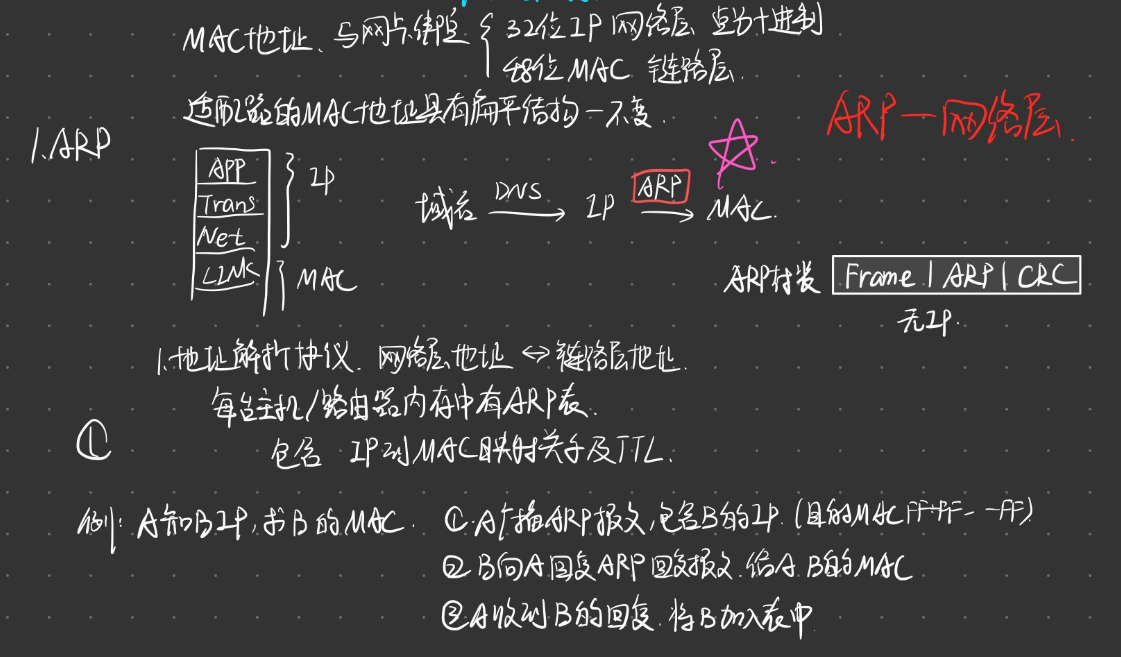 MAC地址、与网卡绑定 { 32位IP 网络层 点分十进制
48位MAC 链路层
适配器的MAC地址具有扁平结构—不变.
ARP—网络层.
1.ARP
APP
Trans
Net
LINK
IP
MAC
域名 DNS → IP ARP → MAC.
ARP封装 Frame | ARP | CRC
无IP.
1.地址解析协议. 网络层地址 ⇔ 链路层地址.
每台主机/路由器内存中有ARP表.
① 包含 IP到MAC映射关系及TTL.
例: A知B IP, 求B的MAC. ①A广播ARP报文,包含B的IP. (目的MAC FF-FF- -FF)
②B向A回复ARP回复报文.给A B的MAC
③A收到B的回复.将B加入表中